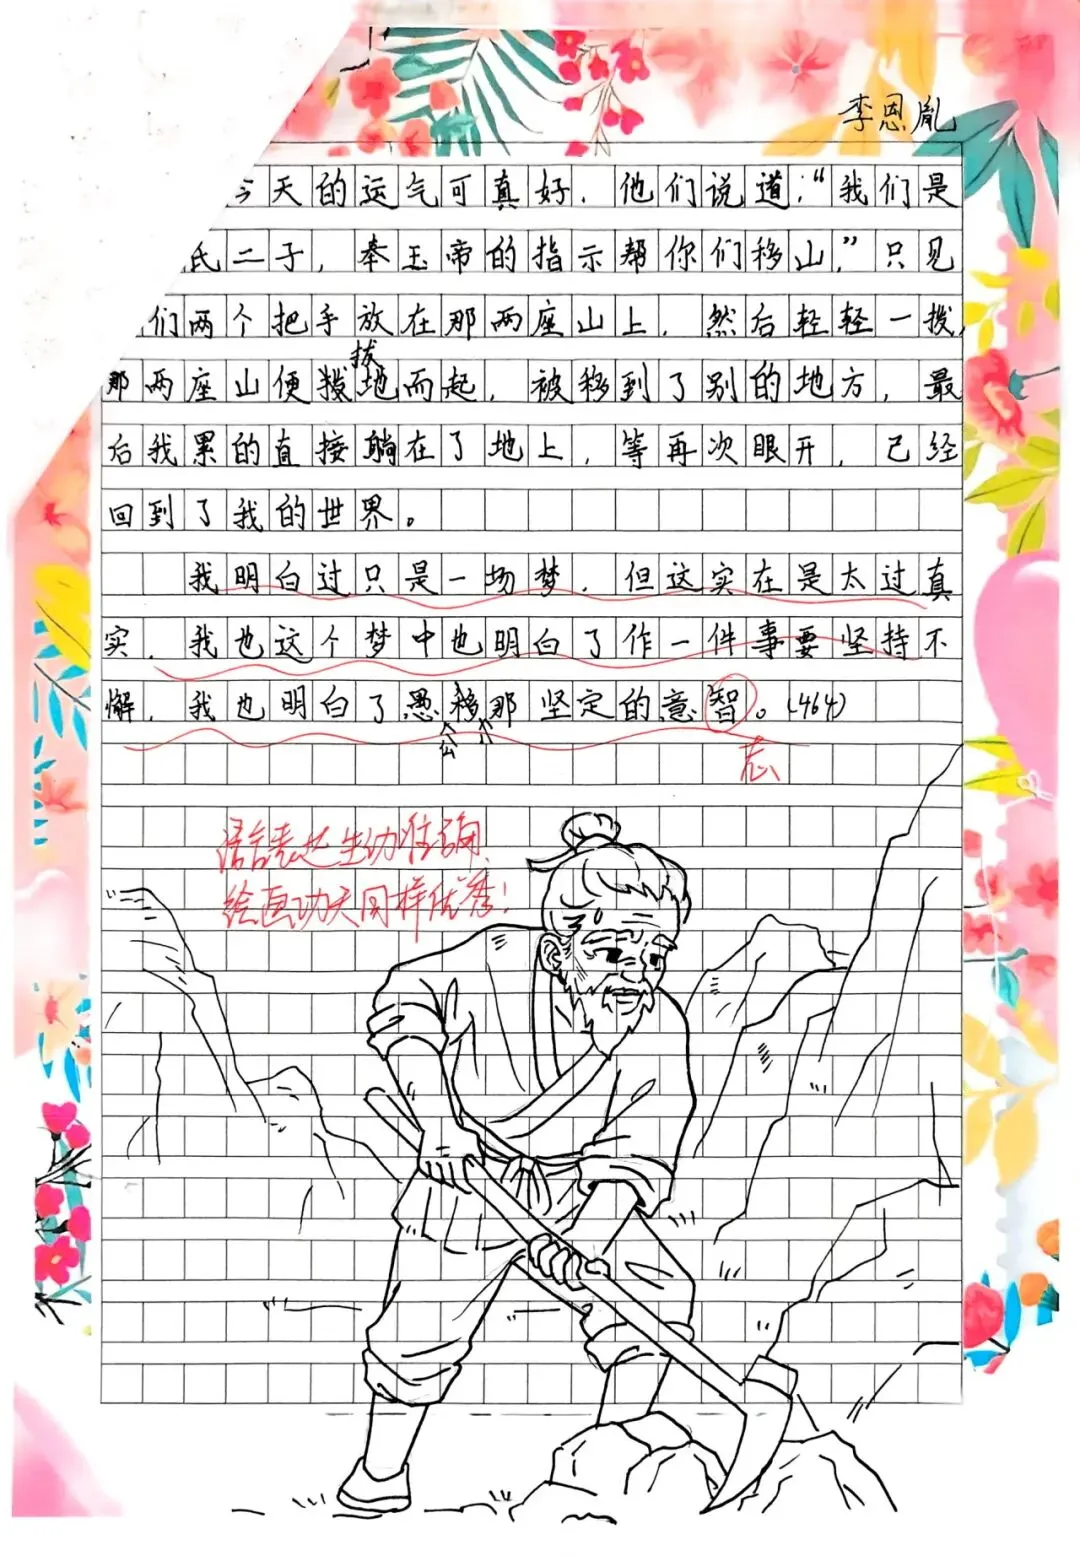 李恩胤
今天的运气可真好,他们说道:“我们是
氏二子,奉玉帝的指示帮你们移山,”只见
们两个把手放在那两座山上,然后轻轻一拨,
拔
那两座山便拨地而起,被移到了别的地方,最
后我累的直接躺在了地上,等再次眼开,已经
回到了我的世界。
我明白过只是一场梦,但这实在是太过真
实,我也这个梦中也明白了作一件事要坚持不
懈,我也明白了愚移那坚定的意智。(464)
公 山
志
语言表达生动准确,
绘画功夫同样优秀!